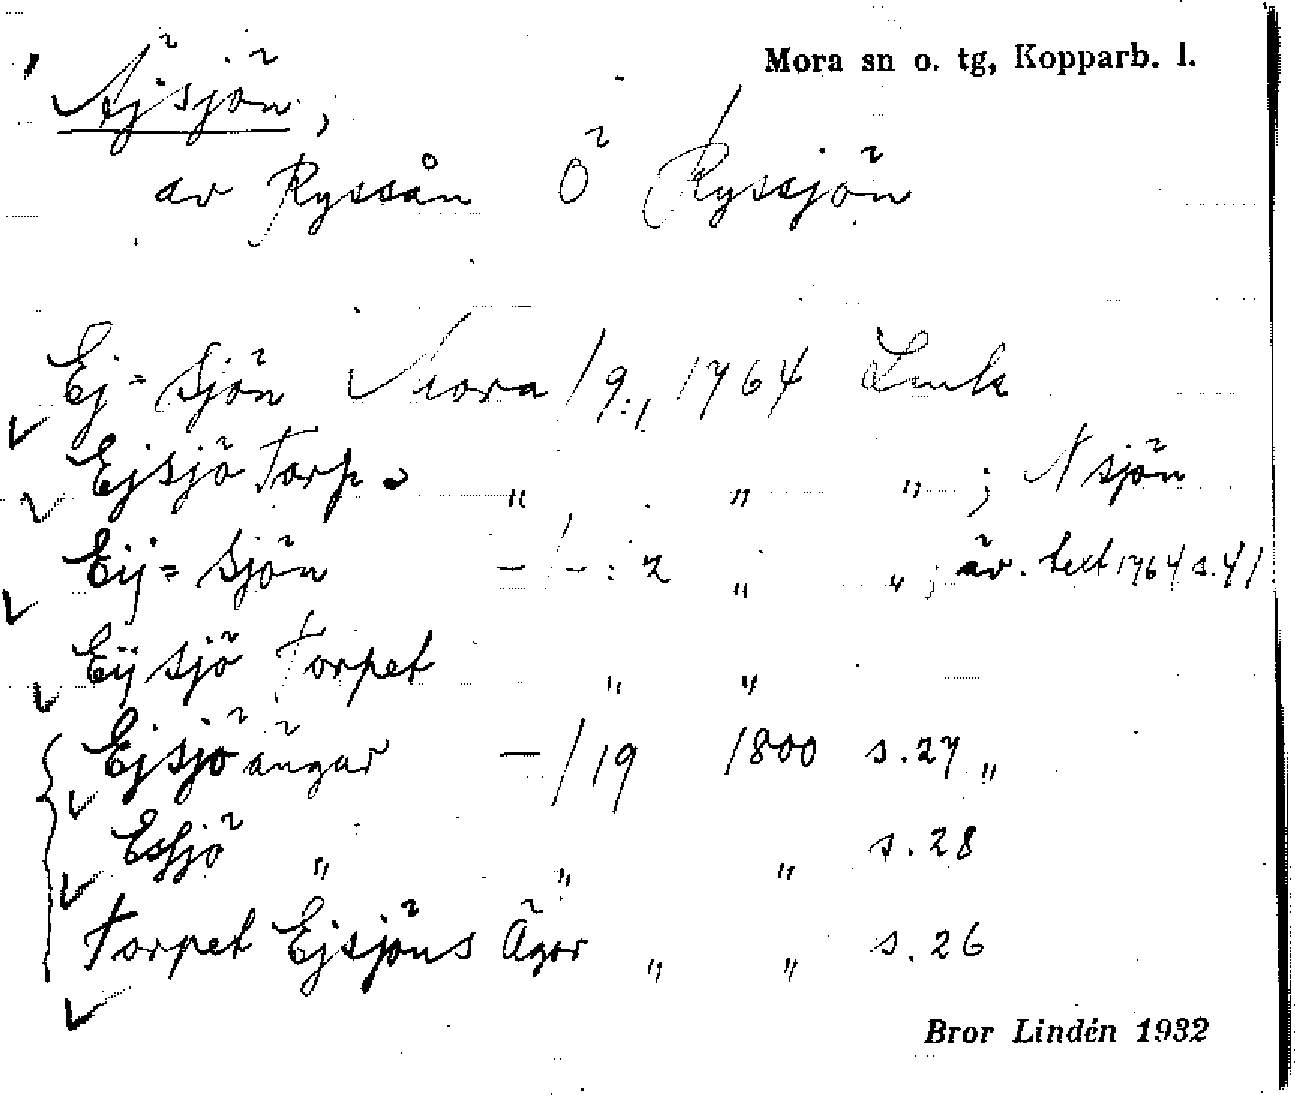 Mora sn o. tg, Kopparb. l.
Äjsjön,
av Ryssån Ö Ryssjön
Ej=sjön Mora /9:1 1764 Lmk
Ejsjö Torp " " " ; N sjön
Eij=sjön -/-:2 " " ; äv. text 1764 s.41
Eijsjö Torpet " "
Ejsjö ängar -/19 1800 s.27 "
Essjö " " " s.28
Torpet Ejsjöns Ägor " " s.26
Bror Lindén 1932